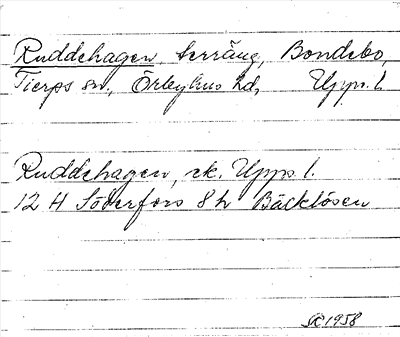 Ruddehagen, terräng, Bondebo,
Tierps sn, Örbyhus hd, Upps. l.
Ruddehagen, ek. Upps. l.
12 H Söderfors 8 h Bäcklösen
1958